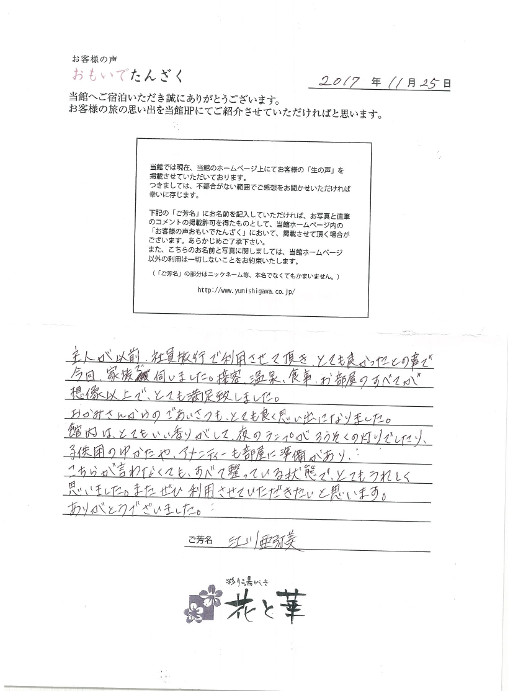 お客様の声
おもいでたんざく
2017 年 11 月 25 日
当館へご宿泊いただき誠にありがとうございます。
お客様の旅の思い出を当館HPにてご紹介させていただければと思います。
当館では現在、当館のホームページ上にてお客様の「生の声」を
掲載させていただいております。
つきましては、不都合がない範囲でご感想をお聞かせいただければ
幸いに存じます。
下記の「ご芳名」にお名前を記入していただければ、お写真と直筆
のコメントの掲載許可を得たものとして、当館ホームページ内の
「お客様の声おもいでたんざく」において、掲載させて頂く場合が
ございます。あらかじめご了承下さい。
また、こちらのお名前と写真に関しましては、当館ホームページ
以外の利用は一切しないことをお約束いたします。
(「ご芳名」の部分はニックネーム等、本名でなくてもかまいません。)
http://www.yunishigawa.co.jp/
主人が以前、社員旅行で利用させて頂き、とても良かったとの事で
今回、家族で伺いました。接客、温泉、食事、お部屋のすべてが
想像以上で、とても満足致しました。
おかみさんからのごあいさつも、とても良く思い出になりました。
館内は、とてもいい香りがして、夜のランプがろうそくの灯りでしたり、
子供用のゆかたや、アメニティーも部屋に準備があり、
こちらが言わなくても、すべて整っている状態で、とてもうれしく
思いました。またぜひ利用させていただきたいと思います。
ありがとうございました。
ご芳名 江川亜弥美
花と華